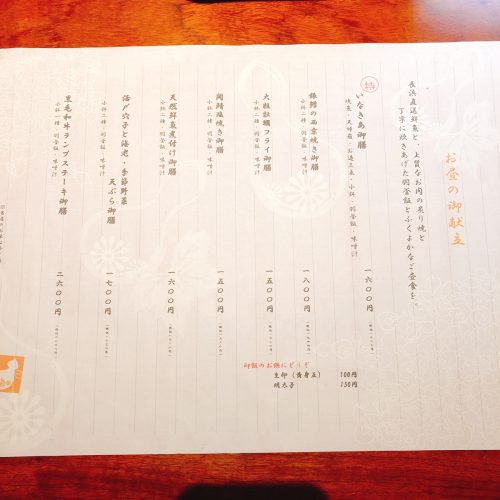 お昼の御献立
長浜直送鮮魚と、上質なお肉の炙り焼と
丁寧に炊きあげた羽釜飯とふくよかなご昼食を。
特
いなきあ御膳 一六〇〇円
焼魚・天婦羅・お造り三点・小鉢・羽釜飯・味噌汁
銀鱈の西京焼き御膳 一八〇〇円
小鉢二種・羽釜飯・味噌汁
大粒牡蠣フライ御膳 一五〇〇円
小鉢二種・羽釜飯・味噌汁
関鯖塩焼き御膳 一五〇〇円
小鉢二種・羽釜飯・味噌汁
天然鮮魚煮付け御膳 一六〇〇円
小鉢二種・羽釜飯・味噌汁
活〆穴子と海老・季節野菜
天ぷら御膳 一七〇〇円
小鉢二種・羽釜飯・味噌汁
黒毛和牛ランプステーキ御膳 二六〇〇円
小鉢二種・羽釜飯・味噌汁
御飯のお供にどうぞ
生卵(黄身玉) 100円
明太子 150円